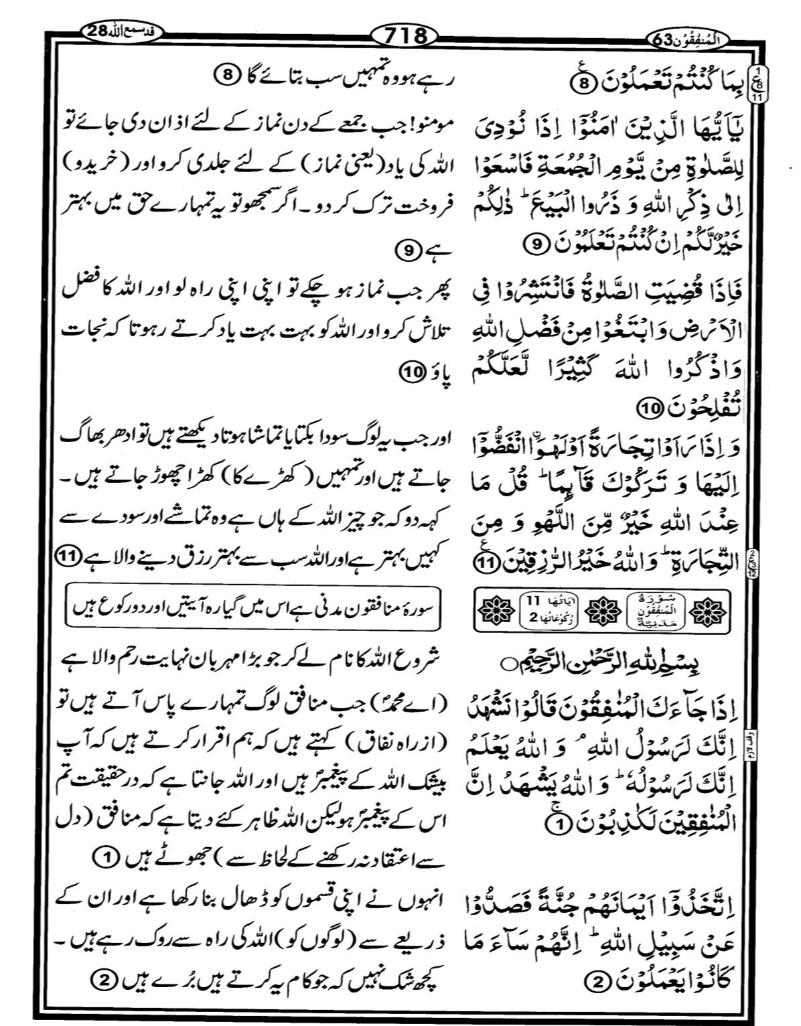 المنفقون 63
718
قد سمع الله 28
بِمَا كُنْتُمْ تَعْمَلُوْنَ ⑧
يٰۤاَيُّهَا الَّذِيْنَ اٰمَنُوْۤا اِذَا نُوْدِيَ
لِلصَّلٰوةِ مِنْ يَّوْمِ الْجُمُعَةِ فَاسْعَوْا
اِلٰى ذِكْرِ اللّٰهِ وَ ذَرُوا الْبَيْعَ ؕ ذٰلِكُمْ
خَيْرٌ لَّكُمْ اِنْ كُنْتُمْ تَعْلَمُوْنَ ⑨
فَاِذَا قُضِيَتِ الصَّلٰوةُ فَانْتَشِرُوْا فِي
الْاَرْضِ وَابْتَغُوْا مِنْ فَضْلِ اللّٰهِ
وَاذْكُرُوا اللّٰهَ كَثِيْرًا لَّعَلَّكُمْ
تُفْلِحُوْنَ ⑩
وَ اِذَا رَاَوْا تِجَارَةً اَوْ لَهْوَا۟ انْفَضُّوْۤا
اِلَيْهَا وَ تَرَكُوْكَ قَآئِمًا ؕ قُلْ مَا
عِنْدَ اللّٰهِ خَيْرٌ مِّنَ اللَّهْوِ وَ مِنَ
التِّجَارَةِ ؕ وَاللّٰهُ خَيْرُ الرّٰزِقِيْنَ ⑪
سُوْرَةُ الْمُنٰفِقُوْنَ مَدَنِيَّةٌ
اٰيَاتُهَا 11 رُكُوْعَاتُهَا 2
بِسْمِ اللّٰهِ الرَّحْمٰنِ الرَّحِيْمِ ○
اِذَا جَآءَكَ الْمُنٰفِقُوْنَ قَالُوْا نَشْهَدُ
اِنَّكَ لَرَسُوْلُ اللّٰهِ ۘ وَ اللّٰهُ يَعْلَمُ
اِنَّكَ لَرَسُوْلُهٗ ؕ وَ اللّٰهُ يَشْهَدُ اِنَّ
الْمُنٰفِقِيْنَ لَكٰذِبُوْنَ ①
اِتَّخَذُوْۤا اَيْمَانَهُمْ جُنَّةً فَصَدُّوْا
عَنْ سَبِيْلِ اللّٰهِ ؕ اِنَّهُمْ سَآءَ مَا
كَانُوْا يَعْمَلُوْنَ ②
رہے ہو وہ تمہیں سب بتائے گا ⑧
مومنو! جب جمعے کے دن نماز کے لئے اذان دی جائے تو
اللہ کی یاد (یعنی نماز) کے لئے جلدی کرو اور (خریدو)
فروخت ترک کر دو۔ اگر سمجھو تو یہ تمہارے حق میں بہتر
ہے ⑨
پھر جب نماز ہو چکے تو اپنی اپنی راہ لو اور اللہ کا فضل
تلاش کرو اور اللہ کو بہت بہت یاد کرتے رہو تا کہ نجات
پاؤ ⑩
اور جب یہ لوگ سودا بکتا یا تماشا ہوتا دیکھتے ہیں تو ادھر بھاگ
جاتے ہیں اور تمہیں (کھڑے کا) کھڑا چھوڑ جاتے ہیں۔
کہہ دو کہ جو چیز اللہ کے ہاں ہے وہ تماشے اور سودے سے
کہیں بہتر ہے اور اللہ سب سے بہتر رزق دینے والا ہے ⑪
سورۂ منافقون مدنی ہے اس میں گیارہ آیتیں اور دو رکوع ہیں
شروع اللہ کا نام لے کر جو بڑا مہربان نہایت رحم والا ہے
(اے محمدؐ) جب منافق لوگ تمہارے پاس آتے ہیں تو
(از راہ نفاق) کہتے ہیں کہ ہم اقرار کرتے ہیں کہ آپ
بیشک اللہ کے پیغمبرؐ ہیں اور اللہ جانتا ہے کہ درحقیقت تم
اس کے پیغمبرؐ ہو لیکن اللہ ظاہر کئے دیتا ہے کہ منافق (دل
سے اعتقاد نہ رکھنے کے لحاظ سے) جھوٹے ہیں ①
انہوں نے اپنی قسموں کو ڈھال بنا رکھا ہے اور ان کے
ذریعے سے (لوگوں کو) اللہ کی راہ سے روک رہے ہیں۔
کچھ شک نہیں کہ جو کام یہ کرتے ہیں بُرے ہیں ②
1
ع
8
11
وقف لازم